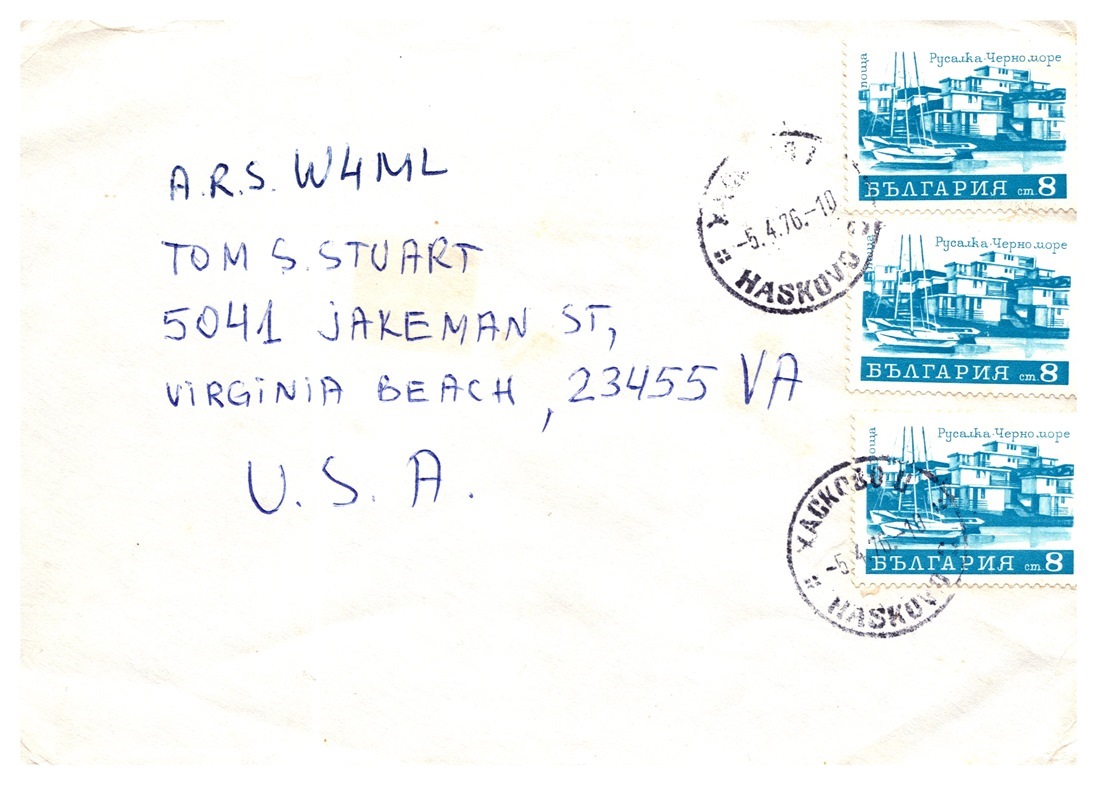 A.R.S. W4ML
TOM S. STUART
5041 JAKEMAN ST,
VIRGINIA BEACH, 23455 VA
U. S. A.
поща
Русалка·Черно море
БЪЛГАРИЯ ст. 8
-5.4.76.-10
HASKOVO
поща
Русалка·Черно море
БЪЛГАРИЯ ст. 8
поща
Русалка·Черно море
БЪЛГАРИЯ ст. 8
ХАСКОВО Ц
-5.4.76.-10
HASKOVO